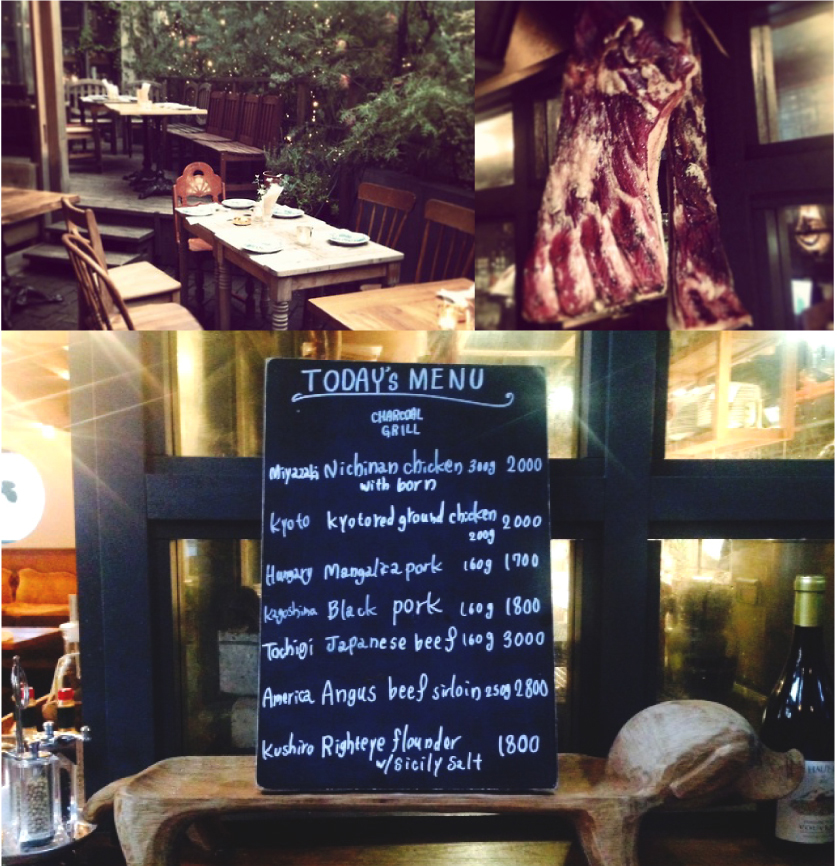 TODAY's MENU
CHARCOAL
GRILL
Miyazaki Nichinan chicken 300g 2000
with born
Kyoto kyotored ground chicken 2000
200g
Hungary Mangalica pork 160g 1700
Kagoshima Black pork 160g 1800
Tochigi Japanese beef 160g 3000
America Angus beef sirloin 250g 2800
Kushiro Righteye flounder 1800
w/sicily salt